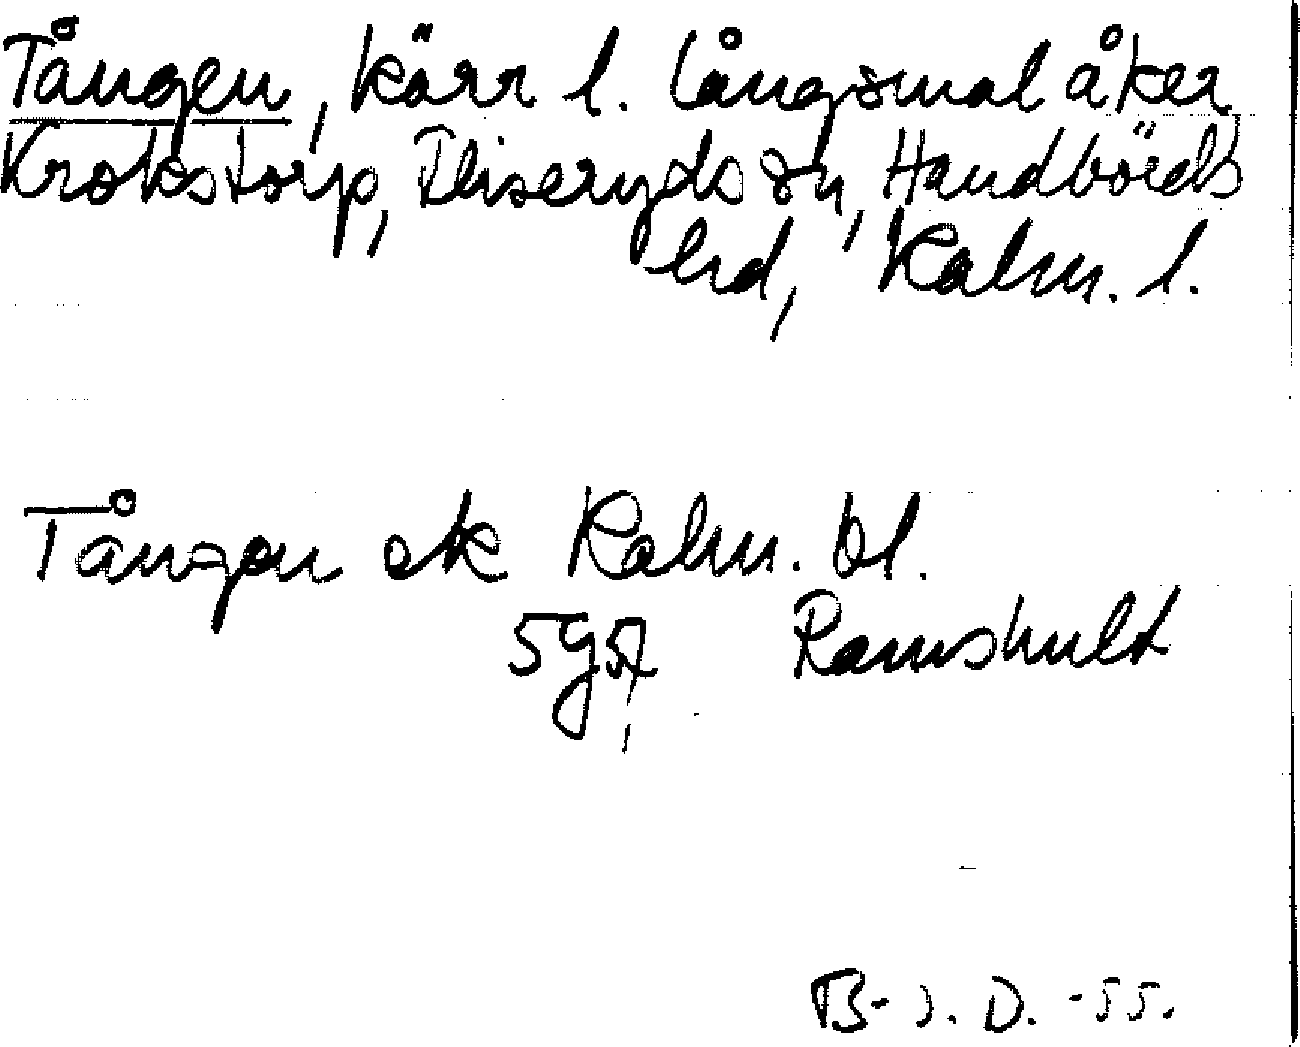 Tången, kärr l. långsmal åker
Krokstorp, Fliseryds sn, Handbörds
hd, Kalm. l.
Tången ek Kalm. bl.
5g57 Ramshult
B-J. D. -55.